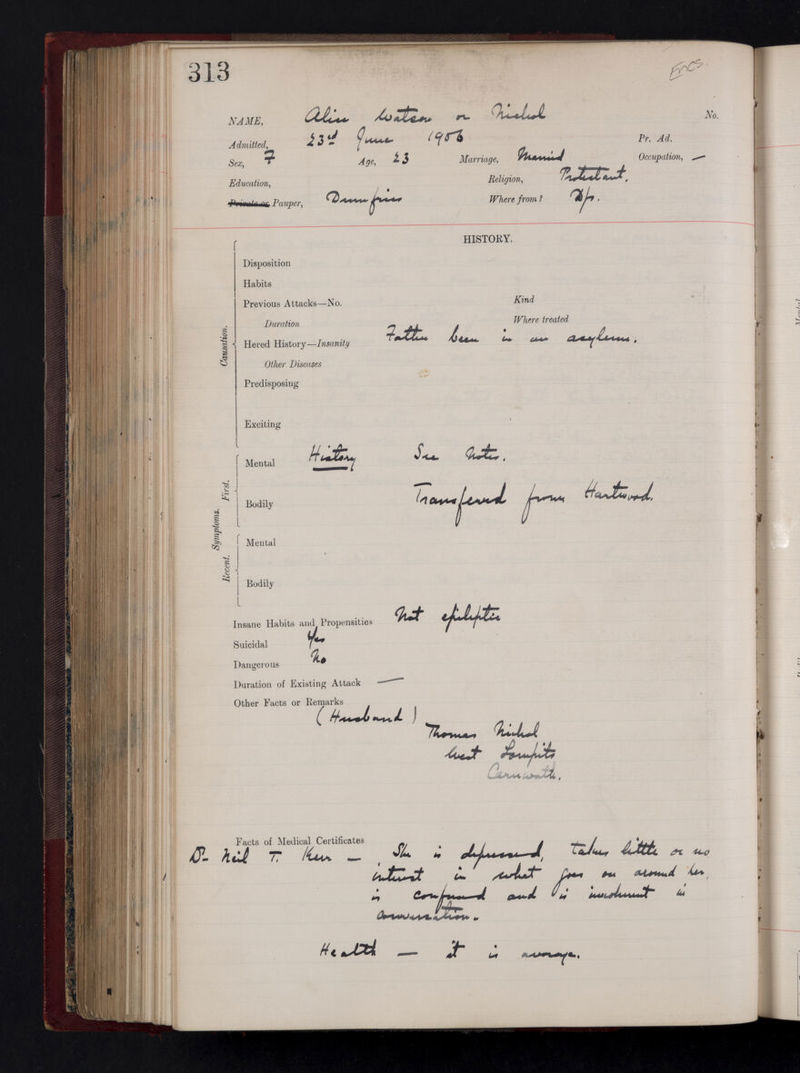 313
NAME, Alice Watson or Nichol No.
Admitted, 23rd June 1906 Pr. Ad.
Sex, F Age, 23 Marriage, Married Occupation, —
Education, Religion, Protestant.
Private or Pauper, Dumfries Where from? D/o.
HISTORY.
Causation.
Disposition
Habits
Previous Attacks—No. Kind
Duration Where treated
Hered History—Insanity Father been in an asylum.
Other Diseases
Predisposing
Exciting
Symptoms.
First.
Mental History See Notes.
Bodily Transferred from Hartwood.
Recent.
Mental
Bodily
Insane Habits and Propensities Not epileptic
Suicidal Yes
Dangerous No
Duration of Existing Attack —
Other Facts or Remarks
(Husband)
Thomas Nichol
West Lampits
Carnwath.
Facts of Medical Certificates
Dr Neil T. Kerr — She is depressed, takes little or no
interest in what goes on around her,
is confused and is incoherent in
conversation.
Health — it is average.